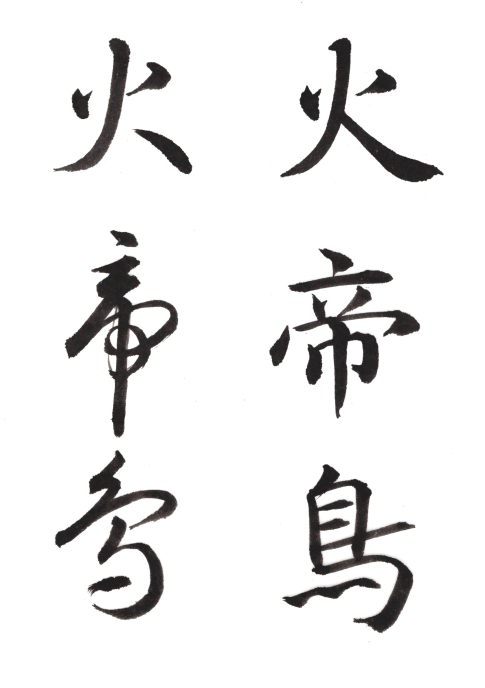 火帝鳥
火帝鳥